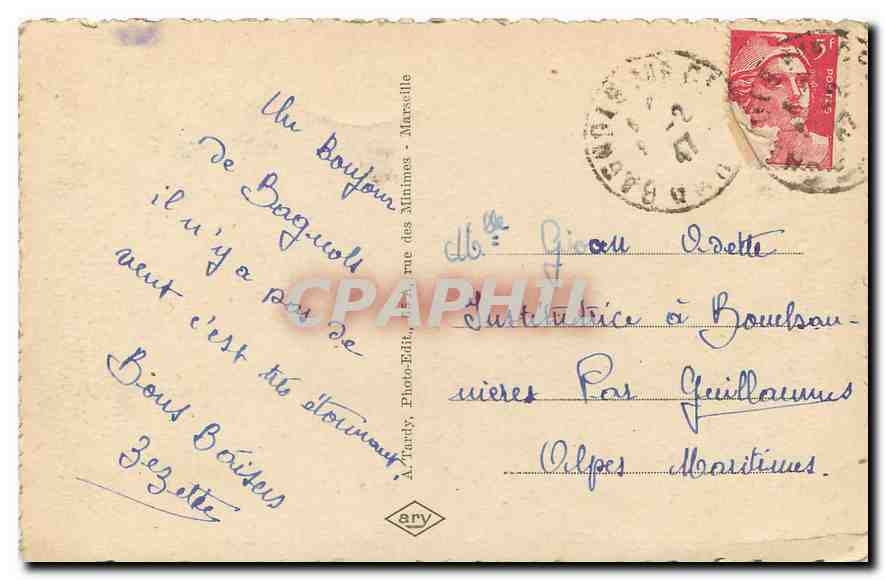 Un Bonjour
de Bagnols
il n'y a pas de
vent c'est très étonnant!
Bons Baisers
Zezette
A. Tardy, Photo-Edit., rue des Minimes - Marseille
ary
CPAPHIL
5f
POSTES
BAGNOLS
-2
47
Mlle Odette
Institutrice à
Par Guillaumes
Alpes Maritimes.